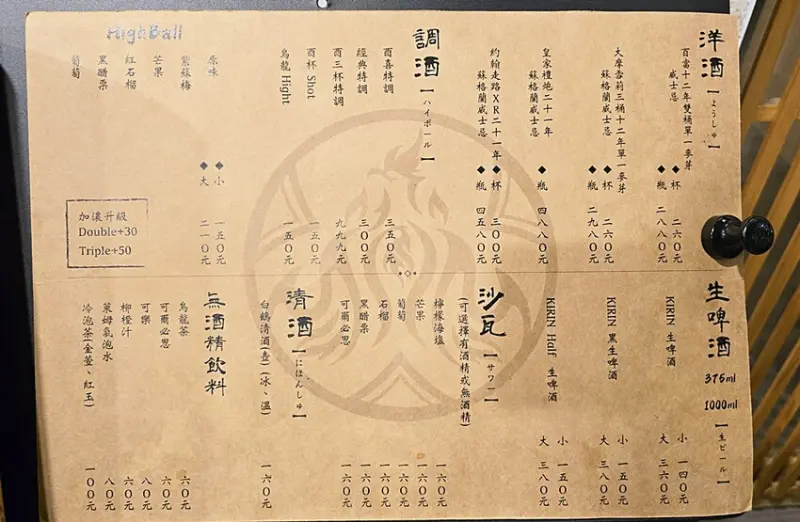 洋酒【ようしゅ】
百富十二年雙桶單一麥芽
威士忌
◆杯 二六〇元
◆瓶 二八八〇元
大摩雪莉三桶十二年單一麥芽
蘇格蘭威士忌
◆杯 二六〇元
◆瓶 二九八〇元
皇家禮炮二十一年
蘇格蘭威士忌
◆瓶 四八八〇元
約翰走路XR二十一年
蘇格蘭威士忌
◆杯 三〇〇元
◆瓶 四五八〇元
調酒【ハイボール】
酉喜特調 三五〇元
經典特調 三〇〇元
酉三杯特調 九九九元
酉杯 Shot 一五〇元
烏龍 Hight 一五〇元
HighBall
原味
紫蘇梅
芒果
紅石榴
黑醋栗
葡萄
◆小 一五〇元
◆大 二一〇元
加濃升級
Double+30
Triple+50
生啤酒 375ml 1000ml【生ビール】
KIRIN 生啤酒
小 一四〇元
大 三六〇元
KIRIN 黑生啤酒
小 一五〇元
大 三八〇元
KIRIN Half 生啤酒
小 一五〇元
大 三八〇元
沙瓦【サワー】
(可選擇有酒精或無酒精)
檸檬海塩 一六〇元
芒果 一六〇元
葡萄 一六〇元
石榴 一六〇元
黑醋栗 一六〇元
可爾必思 一六〇元
清酒【にほんしゅ】
白鶴清酒(壺)(冰、溫) 一六〇元
無酒精飲料
烏龍茶 六〇元
可爾必思 六〇元
可樂 八〇元
柳橙汁 六〇元
萊姆氣泡水 八〇元
冷泡茶(金萱、紅玉) 一〇〇元